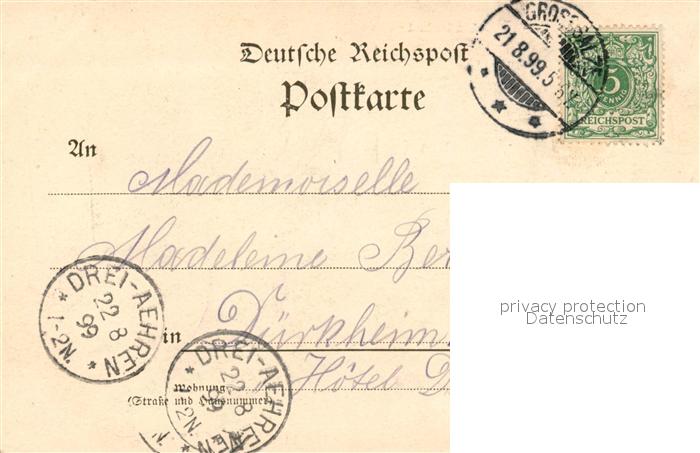 Deutsche Reichspost
Postkarte
GROSS
21.8.99.5
5
PFENNIG
REICHSPOST
An
Mademoiselle
Madeleine Ber
in Dürkheim
Hôtel D
Wohnung
(Straße und Hausnummer)
DREI-AEHREN
22 8
99
1-2N.
DREI-AEHREN
22 8
99
1-2N.
N.
privacy protection
Datenschutz